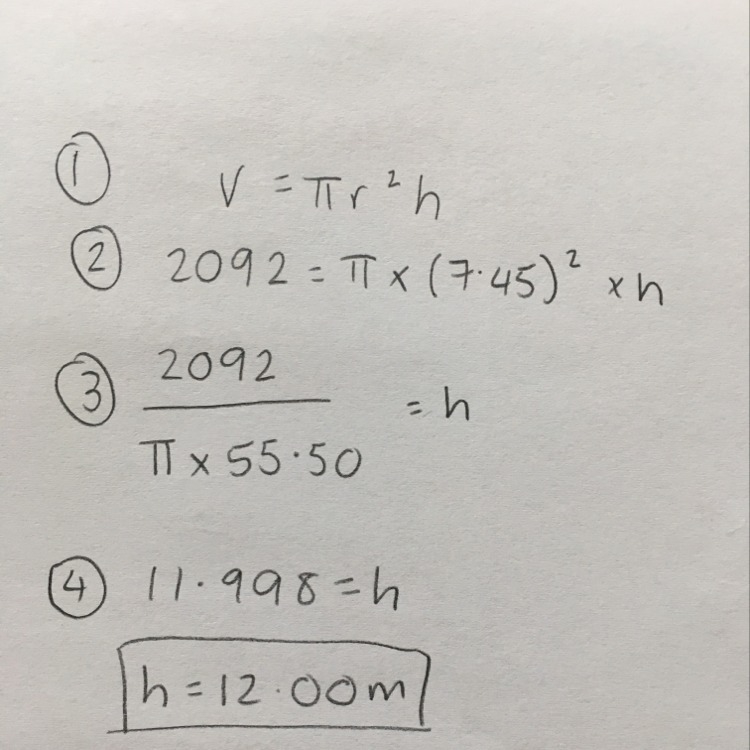 ① V = πr²h
② 2092 = π × (7·45)² × h
③ 2092
= h
π × 55·50
④ 11·998 = h
h = 12·00m